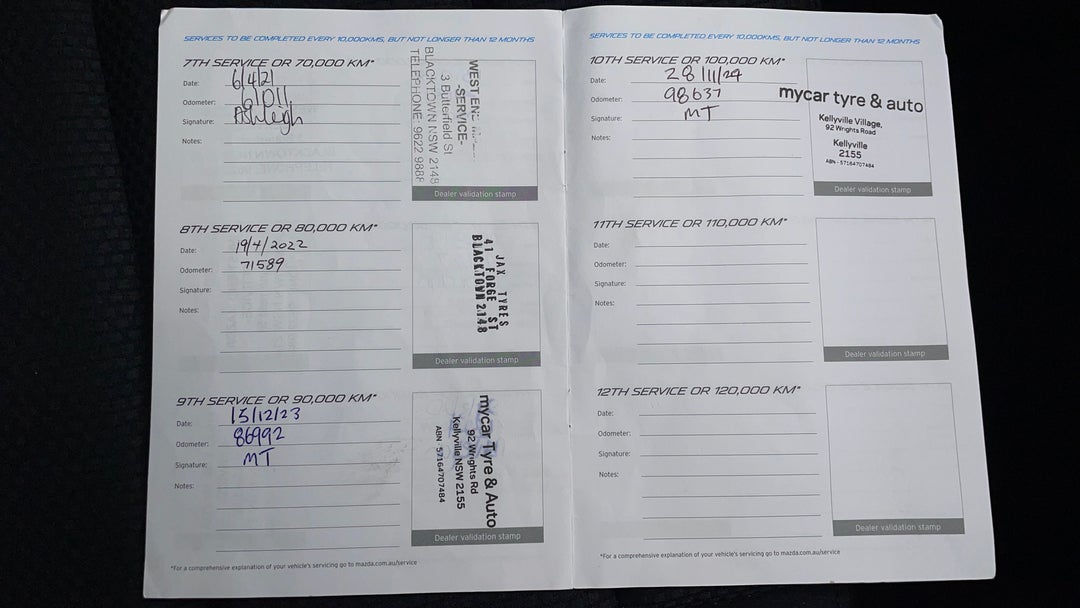 SERVICES TO BE COMPLETED EVERY 10,000KMS, BUT NOT LONGER THAN 12 MONTHS
7TH SERVICE OR 70,000 KM*
Date: 6/4/21
Odometer: 61011
Signature: Ashleigh
Notes:
WEST END
-SERVICE-
3 Butterfield St
BLACKTOWN NSW 2148
TELEPHONE: 9622 9888
Dealer validation stamp
8TH SERVICE OR 80,000 KM*
Date: 19/4/2022
Odometer: 71589
Signature:
Notes:
JAX TYRES
41 FORGE ST
BLACKTOWN 2148
Dealer validation stamp
9TH SERVICE OR 90,000 KM*
Date: 15/12/23
Odometer: 86992
Signature: MT
Notes:
mycar Tyre & Auto
92 Wrights Rd
Kellyville NSW 2155
ABN - 57164707484
Dealer validation stamp
*For a comprehensive explanation of your vehicle's servicing go to mazda.com.au/service
SERVICES TO BE COMPLETED EVERY 10,000KMS, BUT NOT LONGER THAN 12 MONTHS
10TH SERVICE OR 100,000 KM*
Date: 28/11/24
Odometer: 98637
Signature: MT
Notes:
mycar tyre & auto
Kellyville Village,
92 Wrights Road
Kellyville
2155
ABN - 57164707484
Dealer validation stamp
11TH SERVICE OR 110,000 KM*
Date:
Odometer:
Signature:
Notes:
Dealer validation stamp
12TH SERVICE OR 120,000 KM*
Date:
Odometer:
Signature:
Notes:
Dealer validation stamp
*For a comprehensive explanation of your vehicle's servicing go to mazda.com.au/service